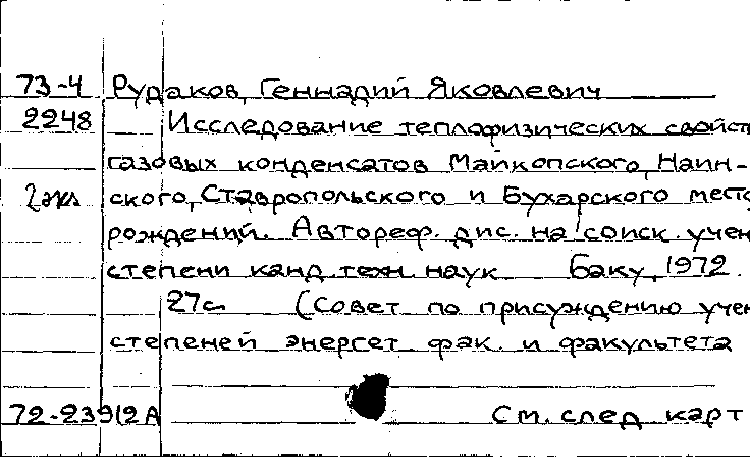 73-4 Рудаков, Геннадий Яковлевич
2248 Исследование теплофизических свойст
газовых конденсатов Майкопского, Наин-
2 экз ского, Ставропольского и Бухарского место
рождений. Автореф. дис. на соиск. учен
степени канд. техн. наук Баку, 1972.
27с (Совет по присуждению учен
степеней энергет фак. и факультета
72-23912А См. след карт